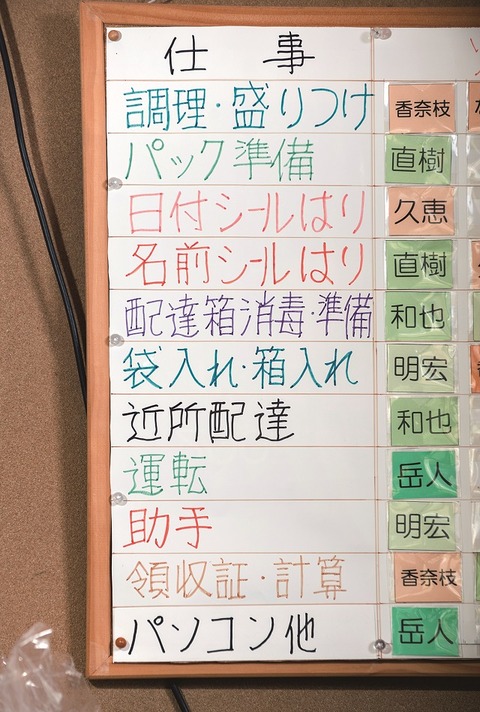 仕事
調理・盛りつけ 香奈枝
パック準備 直樹
日付シールはり 久恵
名前シールはり 直樹
配達箱消毒・準備 和也
袋入れ・箱入れ 明宏
近所配達 和也
運転 岳人
助手 明宏
領収証・計算 香奈枝
パソコン他 岳人